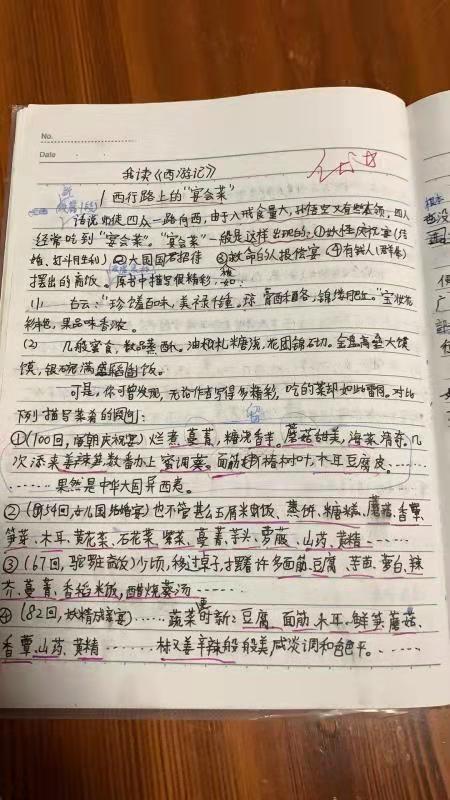 No.
Date
我读《西游记》
西行路上的"宴会菜"
话说师徒四众一路向西,由于八戒食量大,孙悟空又有些本领,四人
经常吃到"宴会菜"。"宴会菜"一般是这样出现的:①妖怪庆祝宴(结
婚、打斗胜利)②大国国君招待 ③救命的人报偿宴 ④有钱人
摆出的斋饭。原书中描写很精彩,如:
(1) 一曰:"珍馐百味,美禄千钟。琼膏酥酪,锦缕肥红。"宝妆花
彩艳,果品味香浓。
(2) 几般蜜食,数品蒸酥。油札糖浇,花团锦砌。金盘高垒大馍
馍,银碗满盛稻饭。
可是,你可曾发现,无论作者写得多精彩,吃的菜却如此雷同。对比
下列描写菜肴的图例:
①(100回,唐朝庆祝宴)烂煮蔓菁,糖浇香芋。蘑菇甜美,海菜清奇。几
次添来姜辣笋,数番办上蜜调葵。面筋椿树叶,木耳豆腐皮。……
……果然是中华大国异西夷。
②(第54回,女儿国结婚宴)也不管甚么玉屑米饭、蒸饼、糖糕、蘑菇、香蕈、
笋芽、木耳、黄花菜、石花菜、紫菜、蔓菁、芋头、萝菔、山药、黄精……
③(67回,驼罗庄斋饭)少顷,移过桌子,摆着许多面筋、豆腐、芋苗、萝白、辣
芥、蔓菁、香稻米饭,醋烧葵汤……
④(82回,妖精成亲宴)……蔬菜更时新:豆腐、面筋、木耳、鲜笋、蘑菇、
香蕈、山药、黄精……椒姜辛辣般般美,咸淡调和色色平。……